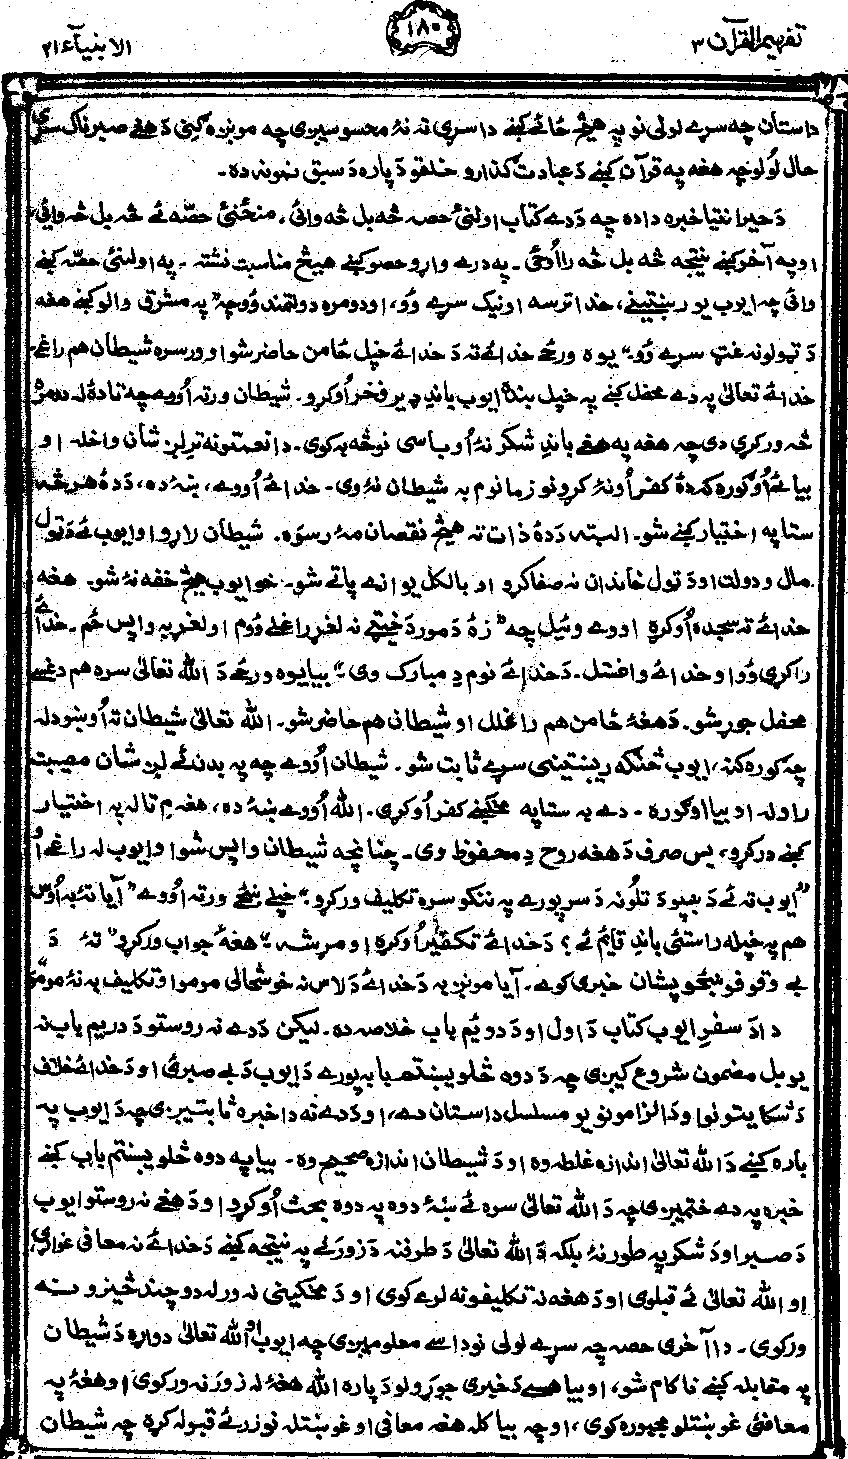 تفهیم القرآن ۳
۱۸۰
الانبیآء ۲۱
داستان چه سړے لولی نو په هیڅ ځائے کښے دا سړی ته نۀ محسوسیږی چه مونږه ګنی د هغے صبرناک سړی
حال لولو چه هغه په قرآن کښے د عبادت ګذارو خلقو د پاره د سبق نمونه ده۔
د حیرانتیا خبره دا ده چه د دے کتاب اولنئ حصه څه بل څه وائی، منځنئ حصّه ئے څه بل څه وائی
او په آخر کښے نتیجه څه بل څه را اُوځی۔ په درے وارو حصو کښے هیڅ مناسبت نشته۔ په اولنئ حصّه کښے
وائی چه ایوب یو رښتینے، خدا ترسه او نیک سړے وُو، او دومره دولتمند وُو چه "په مشرق والو کښے هغه
د ټولو نه غټ سړے وُو" یوه ورځ خدائے ته د خدائے خپل ځامن حاضر شو او ورسره شیطان هم راغے
خدائے تعالیٰ په دے محفل کښے په خپل بنده ایوب باندِ ډیر فخر اُوکړو۔ شیطان ورته اُووے چه تا دۀ له دومره
څه ورکړی دی چه هغه په هغے باندِ شکر نۀ اُوباسی نو څه به کوی۔ دا نعمتونه ترِ لږ شان واخله او
بیا ئے اُوګوره که دۀ کفر اُونۀ کړو نو زما نوم به شیطان نۀ وی۔ خدائے اُووے، ښۀ ده، د دۀ هر څه
ستا په اختیار کښے شو۔ البته د دۀ ذات ته هیڅ نقصان مۀ رسوه۔ شیطان لاړو او ایوب ئے د ټول
مال و دولت او د ټول خاندان نه صفا کړو او بالکل یوازے پاتے شو۔ خو ایوب هیڅ خفه نۀ شو۔ هغه
خدائے ته سجده اُوکړه او وے وئیل چه "زۀ د مور د خیټے نه لغړ راغلے وُوم او لغړ به واپس ځم۔ خدائے
راکړی وُو او خدائے واخستل۔ د خدائے نوم دِ مبارک وی"۔ بیا یوه ورځ د الله تعالیٰ سره هم دغسے
محفل جوړ شو۔ د هغۀ ځامن هم راغلل او شیطان هم حاضر شو۔ الله تعالیٰ شیطان ته اُوښودله
چه ګوره کنه، ایوب څنګه رښتینی سړے ثابت شو۔ شیطان اُووے چه په بدن ئے لږ شان مصیبت
راوله او بیا اوګوره۔ دے به ستا په مخکښے کفر اُوکړی۔ الله اُووے ښۀ ده، هغه مِ تا له په اختیار
کښے درکړو، بس صرف د هغه روح دِ محفوظ وی۔ چنانچه شیطان واپس شو او ایوب له راغے اُو
"ایوب ته ئے د ښپو د تلُونه د سر پورے په ننکو سره تکلیف ورکړو"۔ خپلے ښځے ورته اُووے "آیا تۀ به اُوس
هم په خپله راستئ باندِ قائم ئے؟ د خدائے تکفیر اُوکړه او مړ شه"۔ هغۀ جواب ورکړو "تۀ د
بے وقوفو ښځو پشان خبری کوے۔ آیا مونږ به د خدائے د لاس نه خوشحالی مومو او تکلیف به نۀ مومو"
دا د سفرِ ایوب کتاب د اول او د دوئم باب خلاصه ده۔ لیکن د دے نه روستو د دریم باب نه
یو بل مضمون شروع کیږی چه د دوه څلویښتم باب پورے د ایوب د بے صبرئ او د خدائے خلاف
د شکایتونو او د الزامونو یو مسلسل داستان دے، او د دے نه دا خبره ثابتیږی چه د ایوب په
باره کښے د الله تعالیٰ اندازه غلطه وه او د شیطان اندازه صحیح وه۔ بیا په دوه څلویښتم باب کښے
خبره په دے ختمیږی چه د الله تعالیٰ سره ئے ښۀ دوه په دوه بحث اُوکړو او د هغے نه روستو ایوب
د صبر او د شکر په طور نۀ بلکه د الله تعالیٰ د طرفنه د زورَنے په نتیجه کښے د خدائے نه معافی غواړی،
او الله تعالیٰ ئے قبلوی او د هغه نه تکلیفونه لرے کوی او د مخکینی نه ورله دوچند څیزونه
ورکوی۔ دا آخری حصه چه سړے لولی نو داسے معلومیږی چه ایوب او الله تعالیٰ دواړه د شیطان
په مقابله کښے ناکام شو، او بیا هسے د خبری جوړولو د پاره الله هغۀ له زورنه ورکوی او هغۀ په
معافئ غوښتلو مجبوره کوی، او چه بیا کله هغه معافی اوغوښتله نو زر ئے قبوله کړه چه شیطان